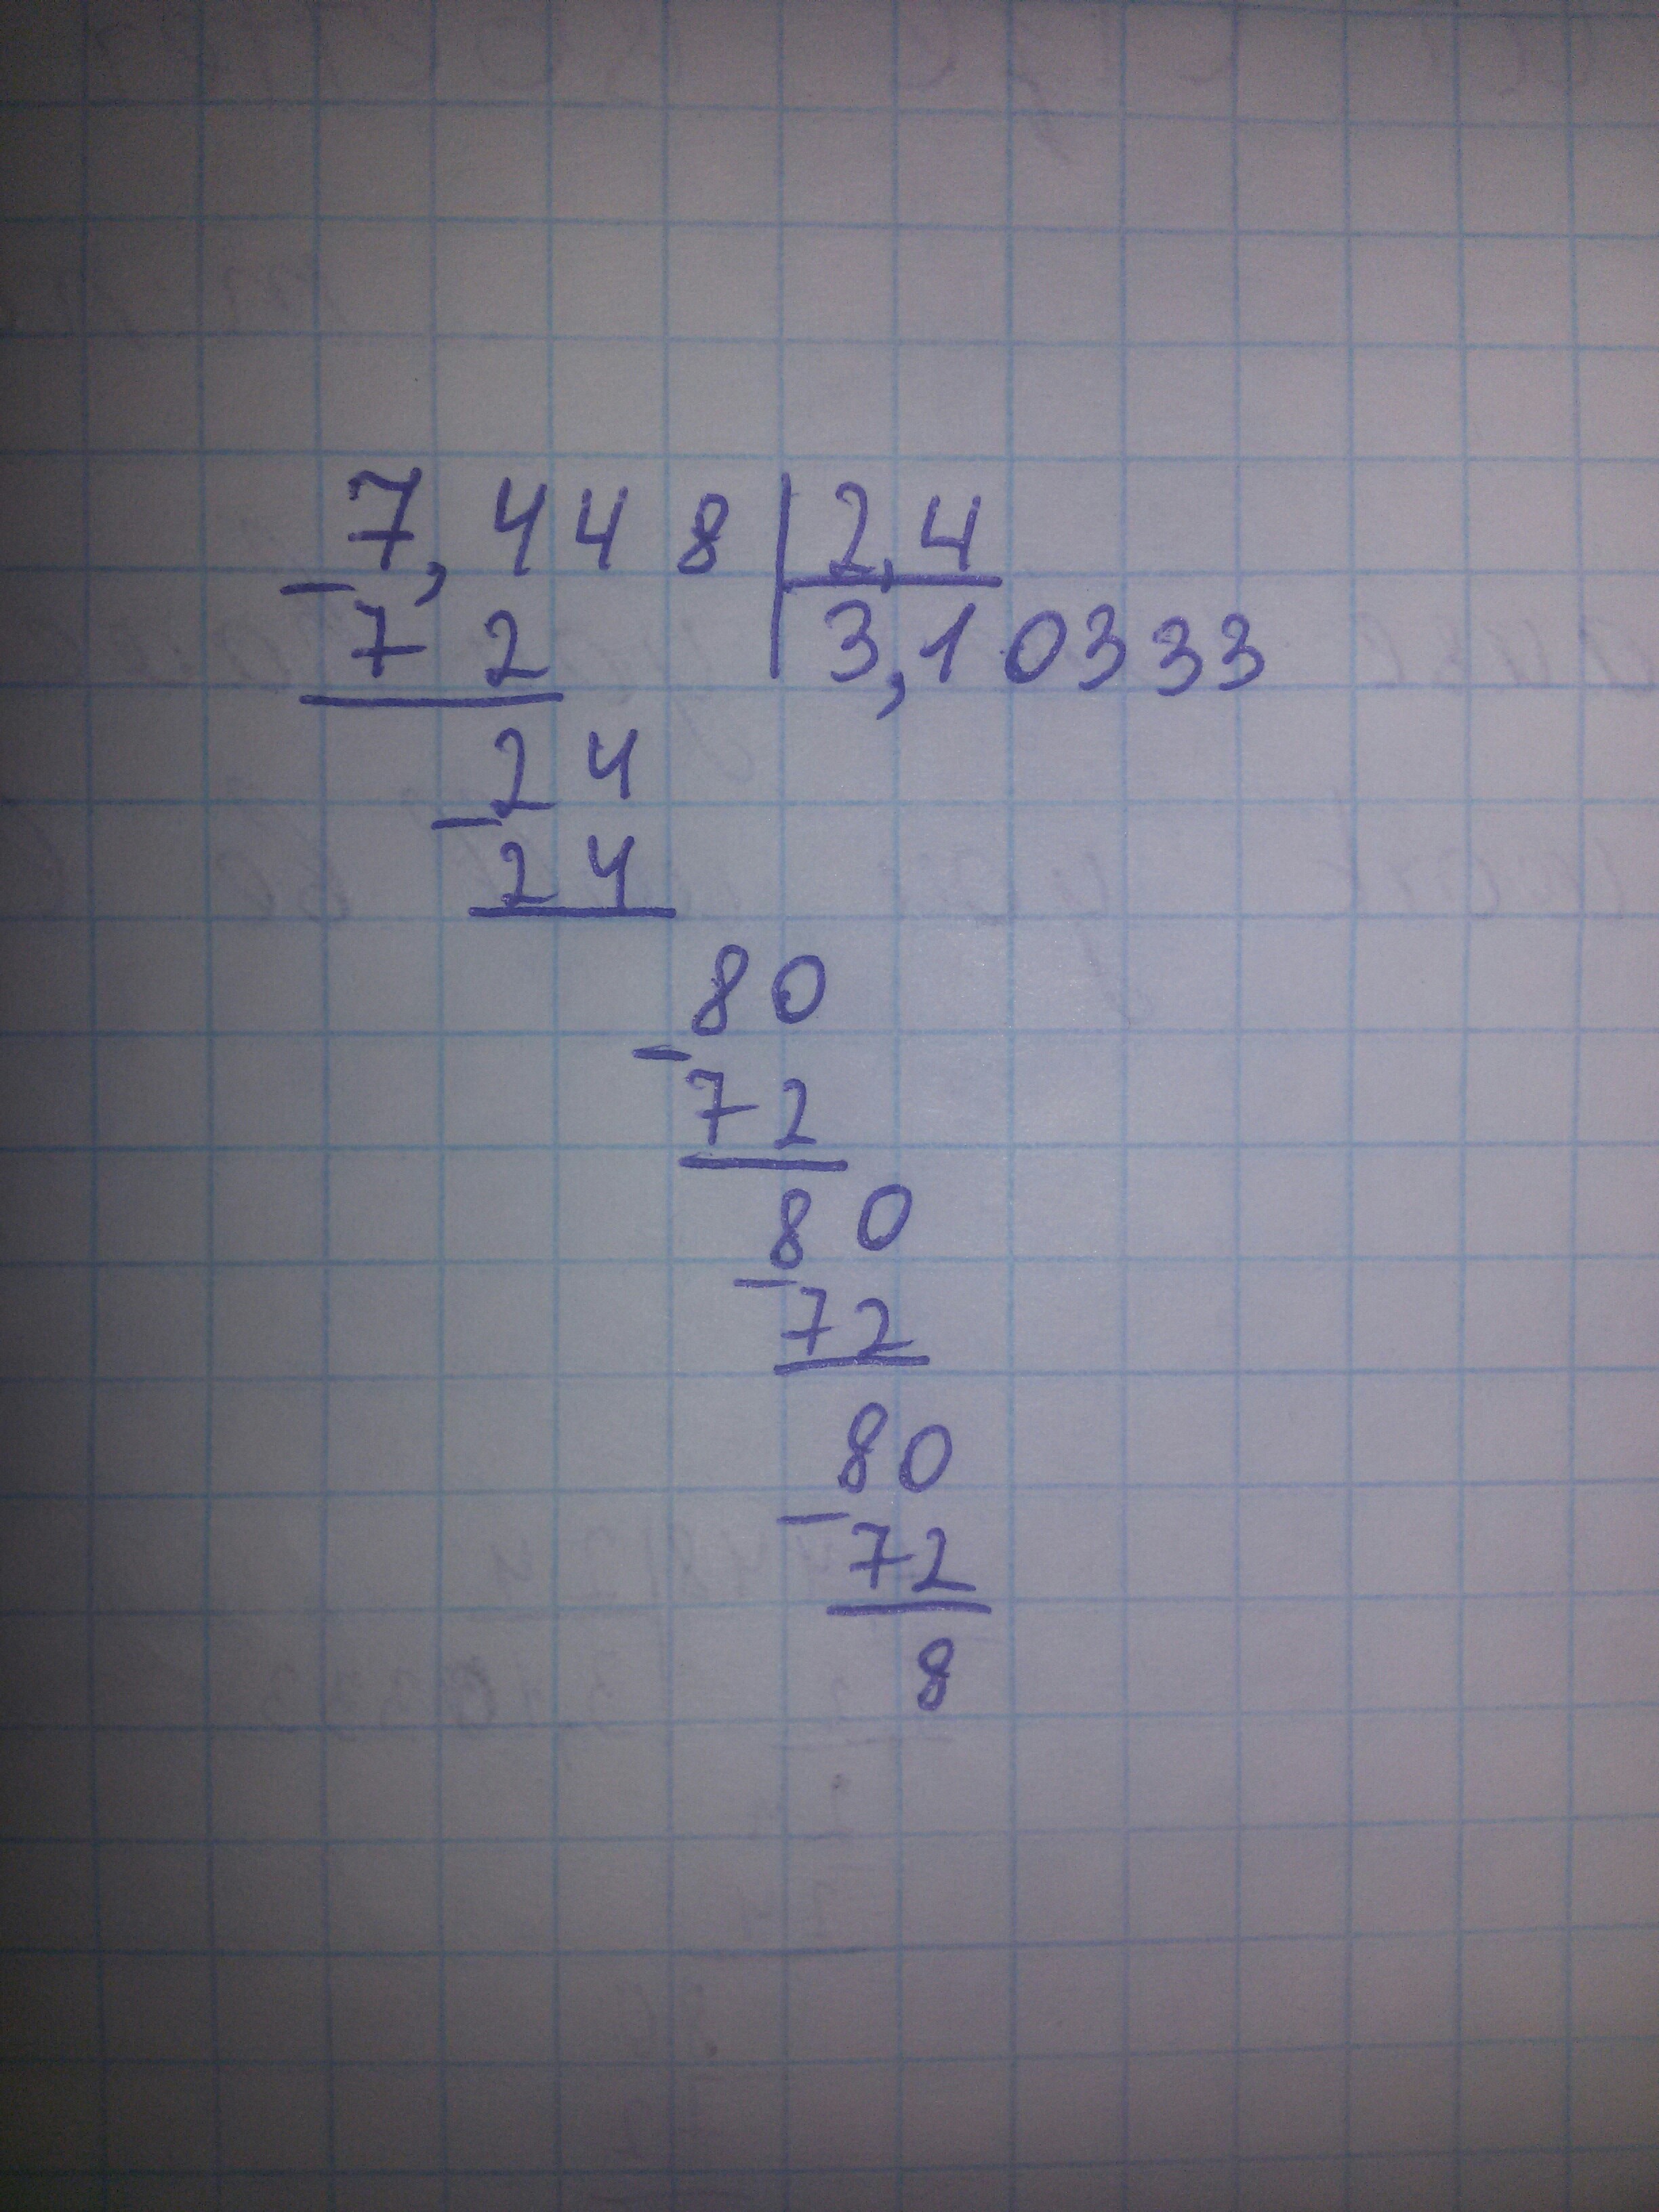 7,448 | 2,4
- 72 | 3,10333
24
- 24
80
- 72
80
- 72
80
- 72
8